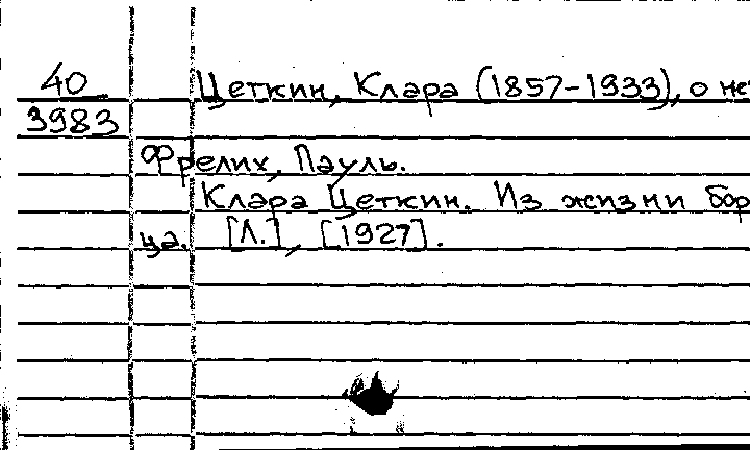 40 Цеткин, Клара (1857-1933), о не
3983
Фрелих, Пауль.
Клара Цеткин. Из жизни бор
ца. [Л.], [1927].